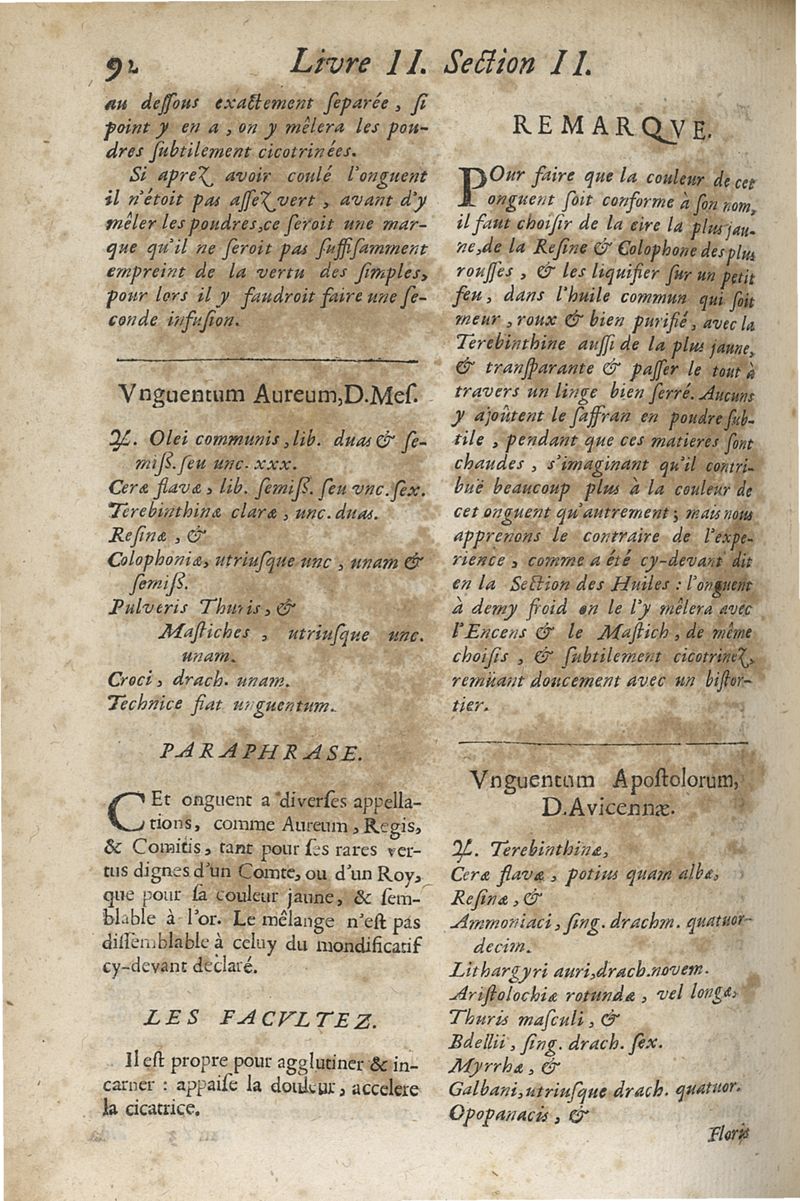 92
Livre II. Section II.
au dessous exactement separée, si
point y en a, on y mêlera les pou-
dres subtilement cicotrinées.
Si aprez avoir coulé l'onguent
il n'étoit pas assez vert, avant d'y
mêler les poudres, ce seroit une mar-
que qu'il ne seroit pas suffisamment
empreint de la vertu des simples,
pour lors il y faudroit faire une se-
conde infusion.
Vnguentum Aureum, D. Mes.
♃. Olei communis, lib. duas & se-
miß. seu unc. xxx.
Ceræ flavæ, lib. semiß. seu vnc. sex.
Terebinthinæ claræ, unc. duas.
Resinæ, &
Colophoniæ, utriusque unc, unam &
semiß.
Pulveris Thuris, &
Mastiches, utriusque unc.
unam.
Croci, drach. unam.
Technice fiat unguentum.
PARAPHRASE.
CEt onguent a diverses appella-
tions, comme Aureum, Regis,
& Comitis, tant pour ses rares ver-
tus dignes d'un Comte, ou d'un Roy,
que pour sa couleur jaune, & sem-
blable à l'or. Le mêlange n'est pas
dissemblable à celuy du mondificatif
cy-devant declaré.
LES FACVLTEZ.
Il est propre pour agglutiner & in-
carner : appaise la douleur, accelere
la cicatrice.
REMARQVE.
POur faire que la couleur de cet
onguent soit conforme à son nom,
il faut choisir de la eire la plus jau-
ne, de la Resine & Colophone des plus
rousses, & les liquifier sur un petit
feu, dans l'huile commun qui soit
meur, roux & bien purifié, avec la
Terebinthine aussi de la plus jaune,
& transparante & passer le tout à
travers un linge bien serré. Aucuns
y ajoûtent le saffran en poudre sub-
tile, pendant que ces matieres sont
chaudes, s'imaginant qu'il contri-
buë beaucoup plus à la couleur de
cet onguent qu'autrement ; mais nous
apprenons le contraire de l'expe-
rience, comme a été cy-devant dit
en la Section des Huiles : l'onguent
à demy froid on le l'y mêlera avec
l'Encens & le Mastich, de même
choisis, & subtilement cicotrinez,
remüant doucement avec un bistor-
tier.
Vnguentum Apostolorum,
D. Avicennæ.
♃. Terebinthinæ,
Ceræ flavæ, potius quam albæ,
Resinæ, &
Ammoniaci, sing. drachm. quatuor-
decim.
Lithargyri auri, drach. novem.
Aristolochiæ rotundæ, vel longæ,
Thuris masculi, &
Bdellii, sing. drach. sex.
Myrrhæ, &
Galbani, utriusque drach. quatuor.
Opopanacis, &
Floris